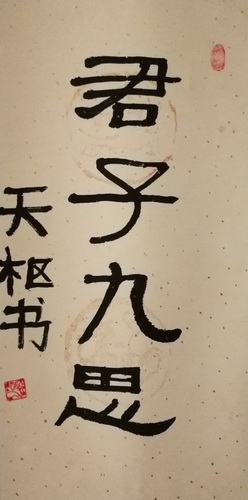 君子九思
天枢书